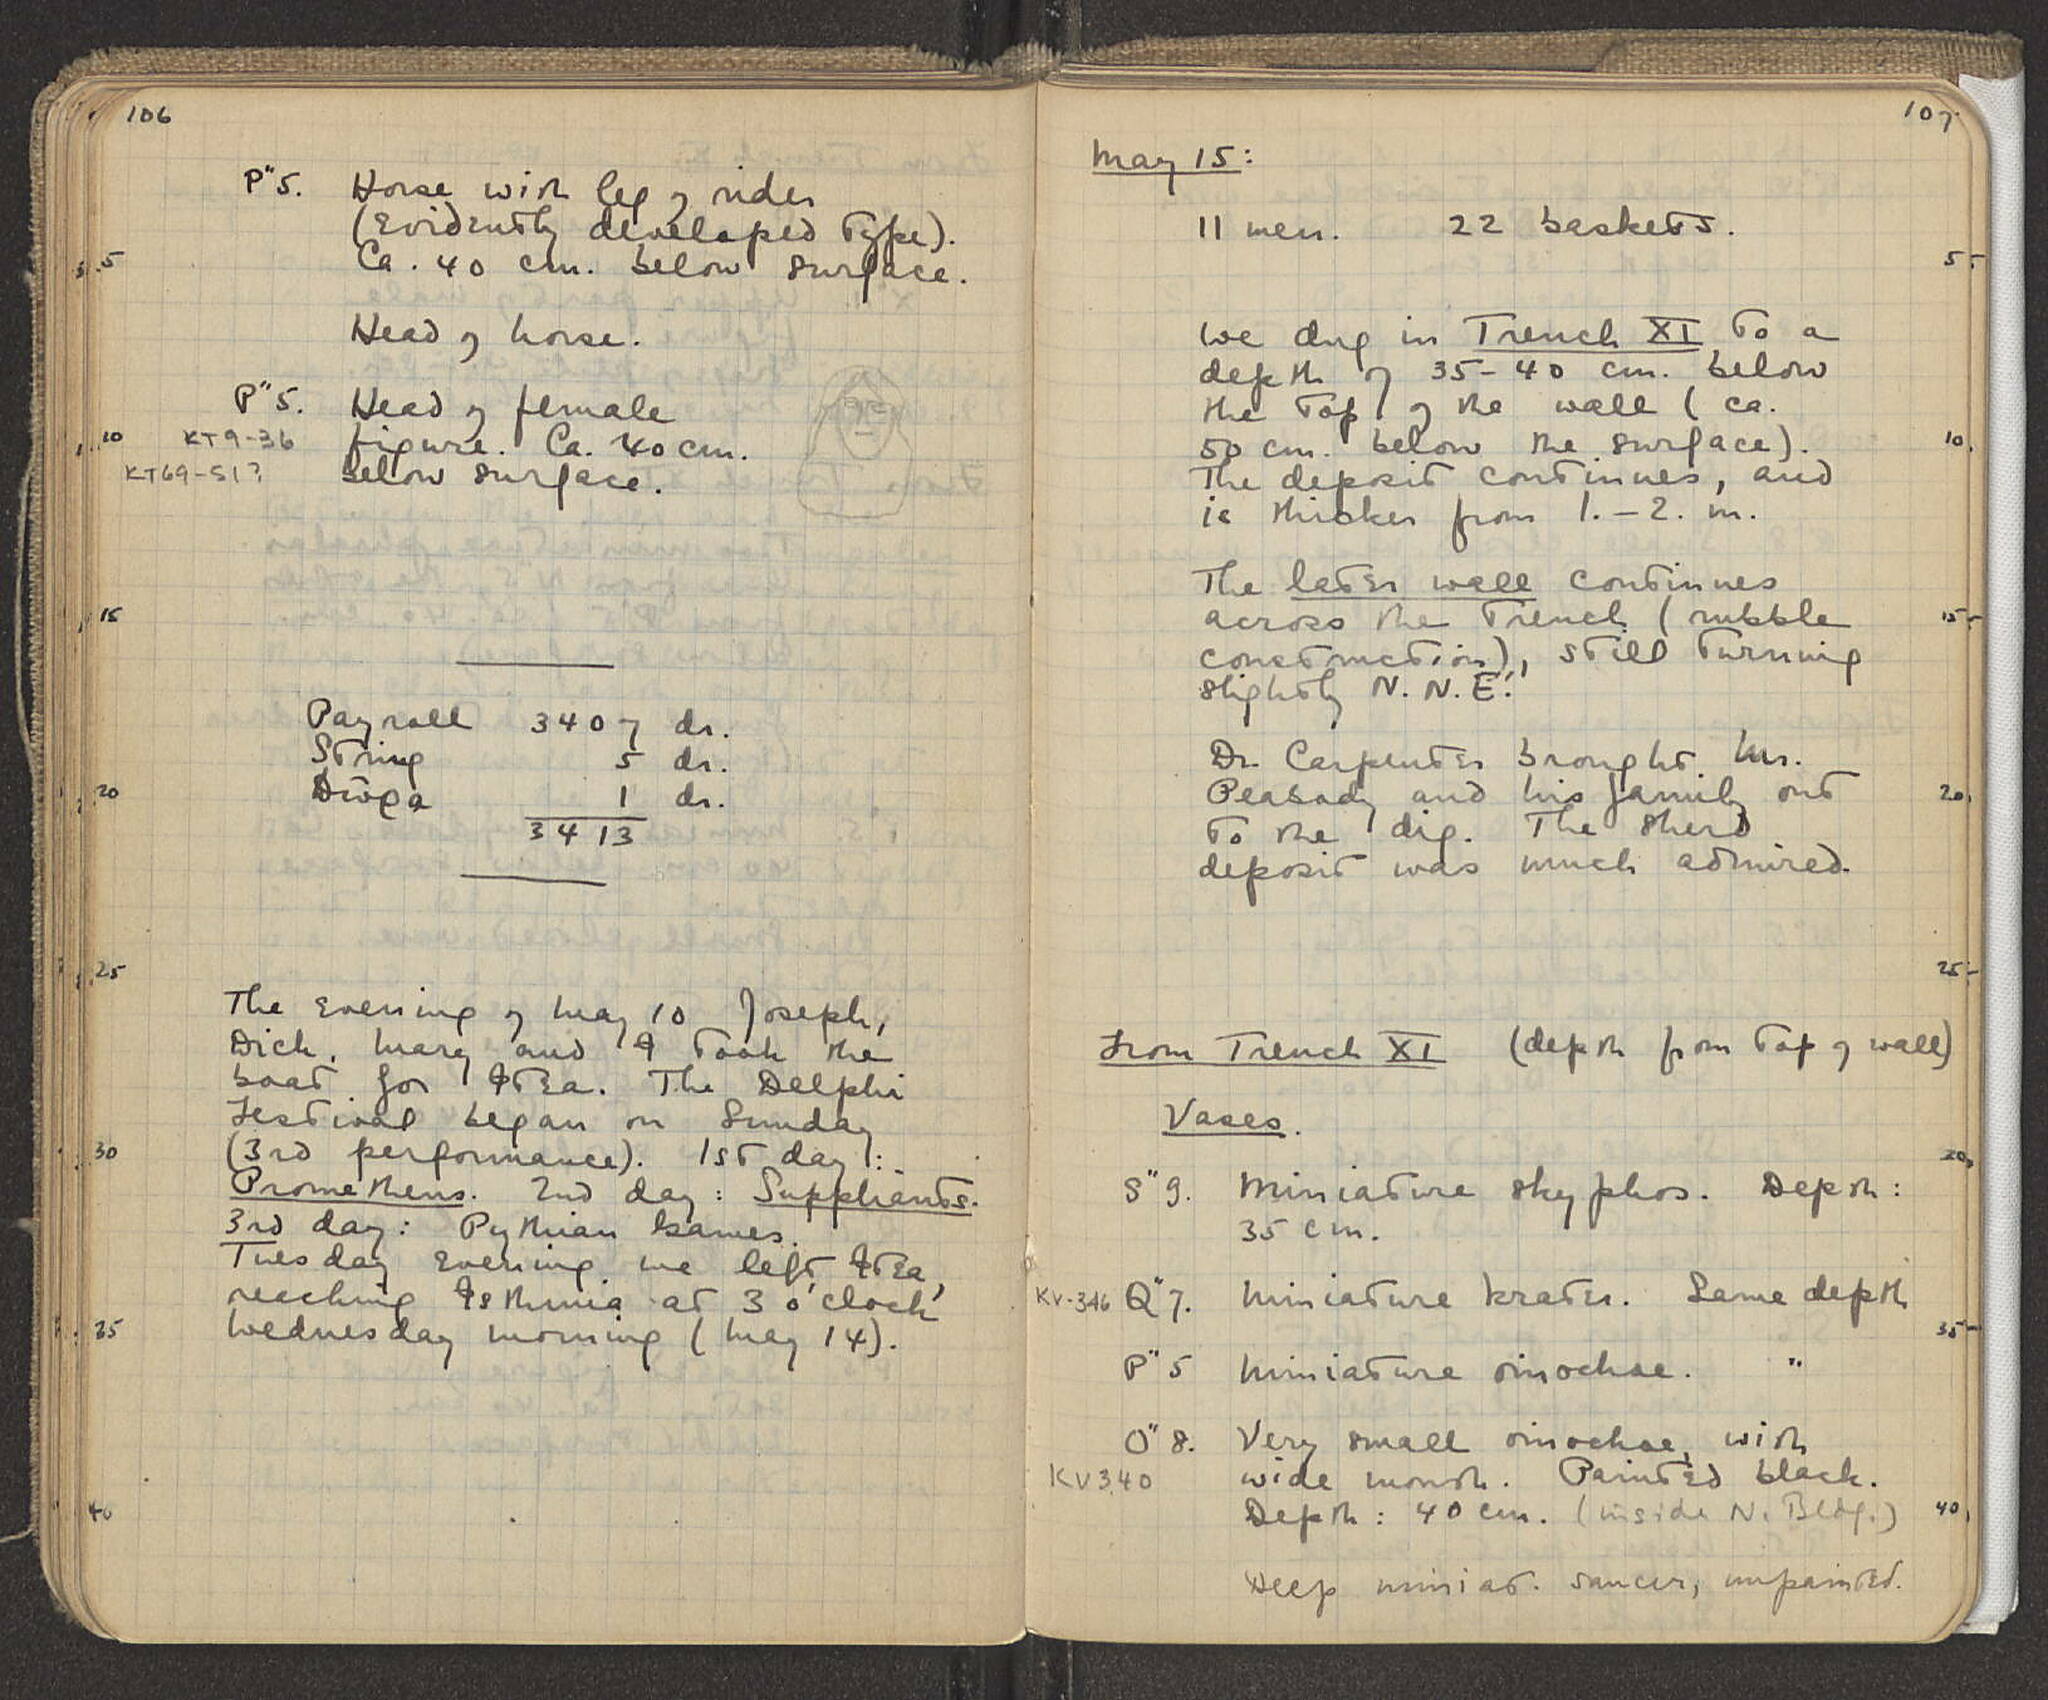 106
P"5. Horse with leg of rider
(Evidently developed type).
5 Ca. 40 cm. below surface.
Head of horse.
P"5. Head of female
10 KT9-36 figure. Ca. 40 cm.
KT69-51? below surface.
15
Payroll 3407 dr.
String 5 dr.
20 1 dr.
3413
25
The evening of May 10 Joseph,
Dick, Mary and I took the
boat for Itea. The Delphi
Festival began on Sunday
30 (3rd performance). 1st day:
Prometheus. 2nd day: Suppliants.
3rd day: Pythian Games.
Tuesday evening we left Itea,
reaching Isthmia at 3 o'clock
35 Wednesday morning (May 14).
40
107
May 15:
11 men. 22 baskets.
5
We dug in Trench XI to a
depth of 35-40 cm. below
the top of the wall (ca.
50 cm. below the surface). 10
The deposit continues, and
is thicker from 1.-2. m.
The later wall continues
across the Trench (rubble 15
construction), still turning
slightly N.N.E.
Dr. Carpenter brought Mr.
Peabody and his family out 20
to the dig. The sherd
deposit was much admired.
25
From Trench XI (depth from top of wall)
Vases.
30
S"9. Miniature skyphos. Depth:
35 cm.
KV-346 Q"7. Miniature krater. Same depth
35
P"5 Miniature oinochoe. "
O"8. Very small oinochoe, with
KV340 wide mouth. Painted black.
Depth: 40 cm. (inside N. Bldg.) 40
Deep miniat. saucer, unpainted.